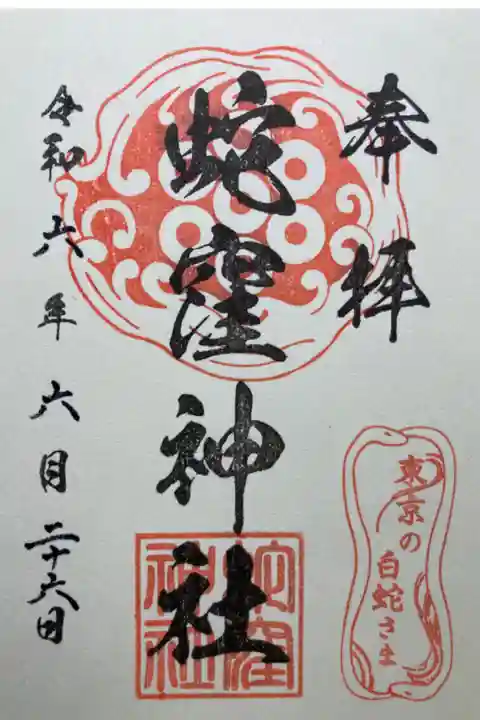 奉拝
蛇窪神社
令和六年六月二十六日
東京の
白蛇さま
蛇窪
神社